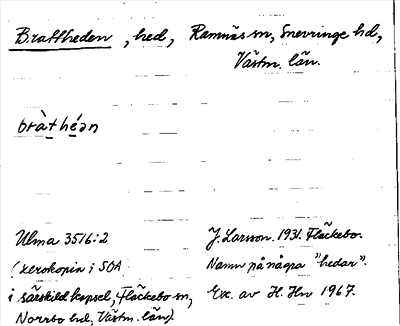 Brattheden, hed, Ramnäs sn, Snevringe hd,
Västm. län.
bràthéan
Ulma 3516:2
J. Larsson. 1931. Fläckebo.
(xerokopia i SOA
Namn på några "hedar".
i särskild kapsel, Fläckebo sn,
Exc. av H. Hn 1967.
Norrbo hd, Västm. län).